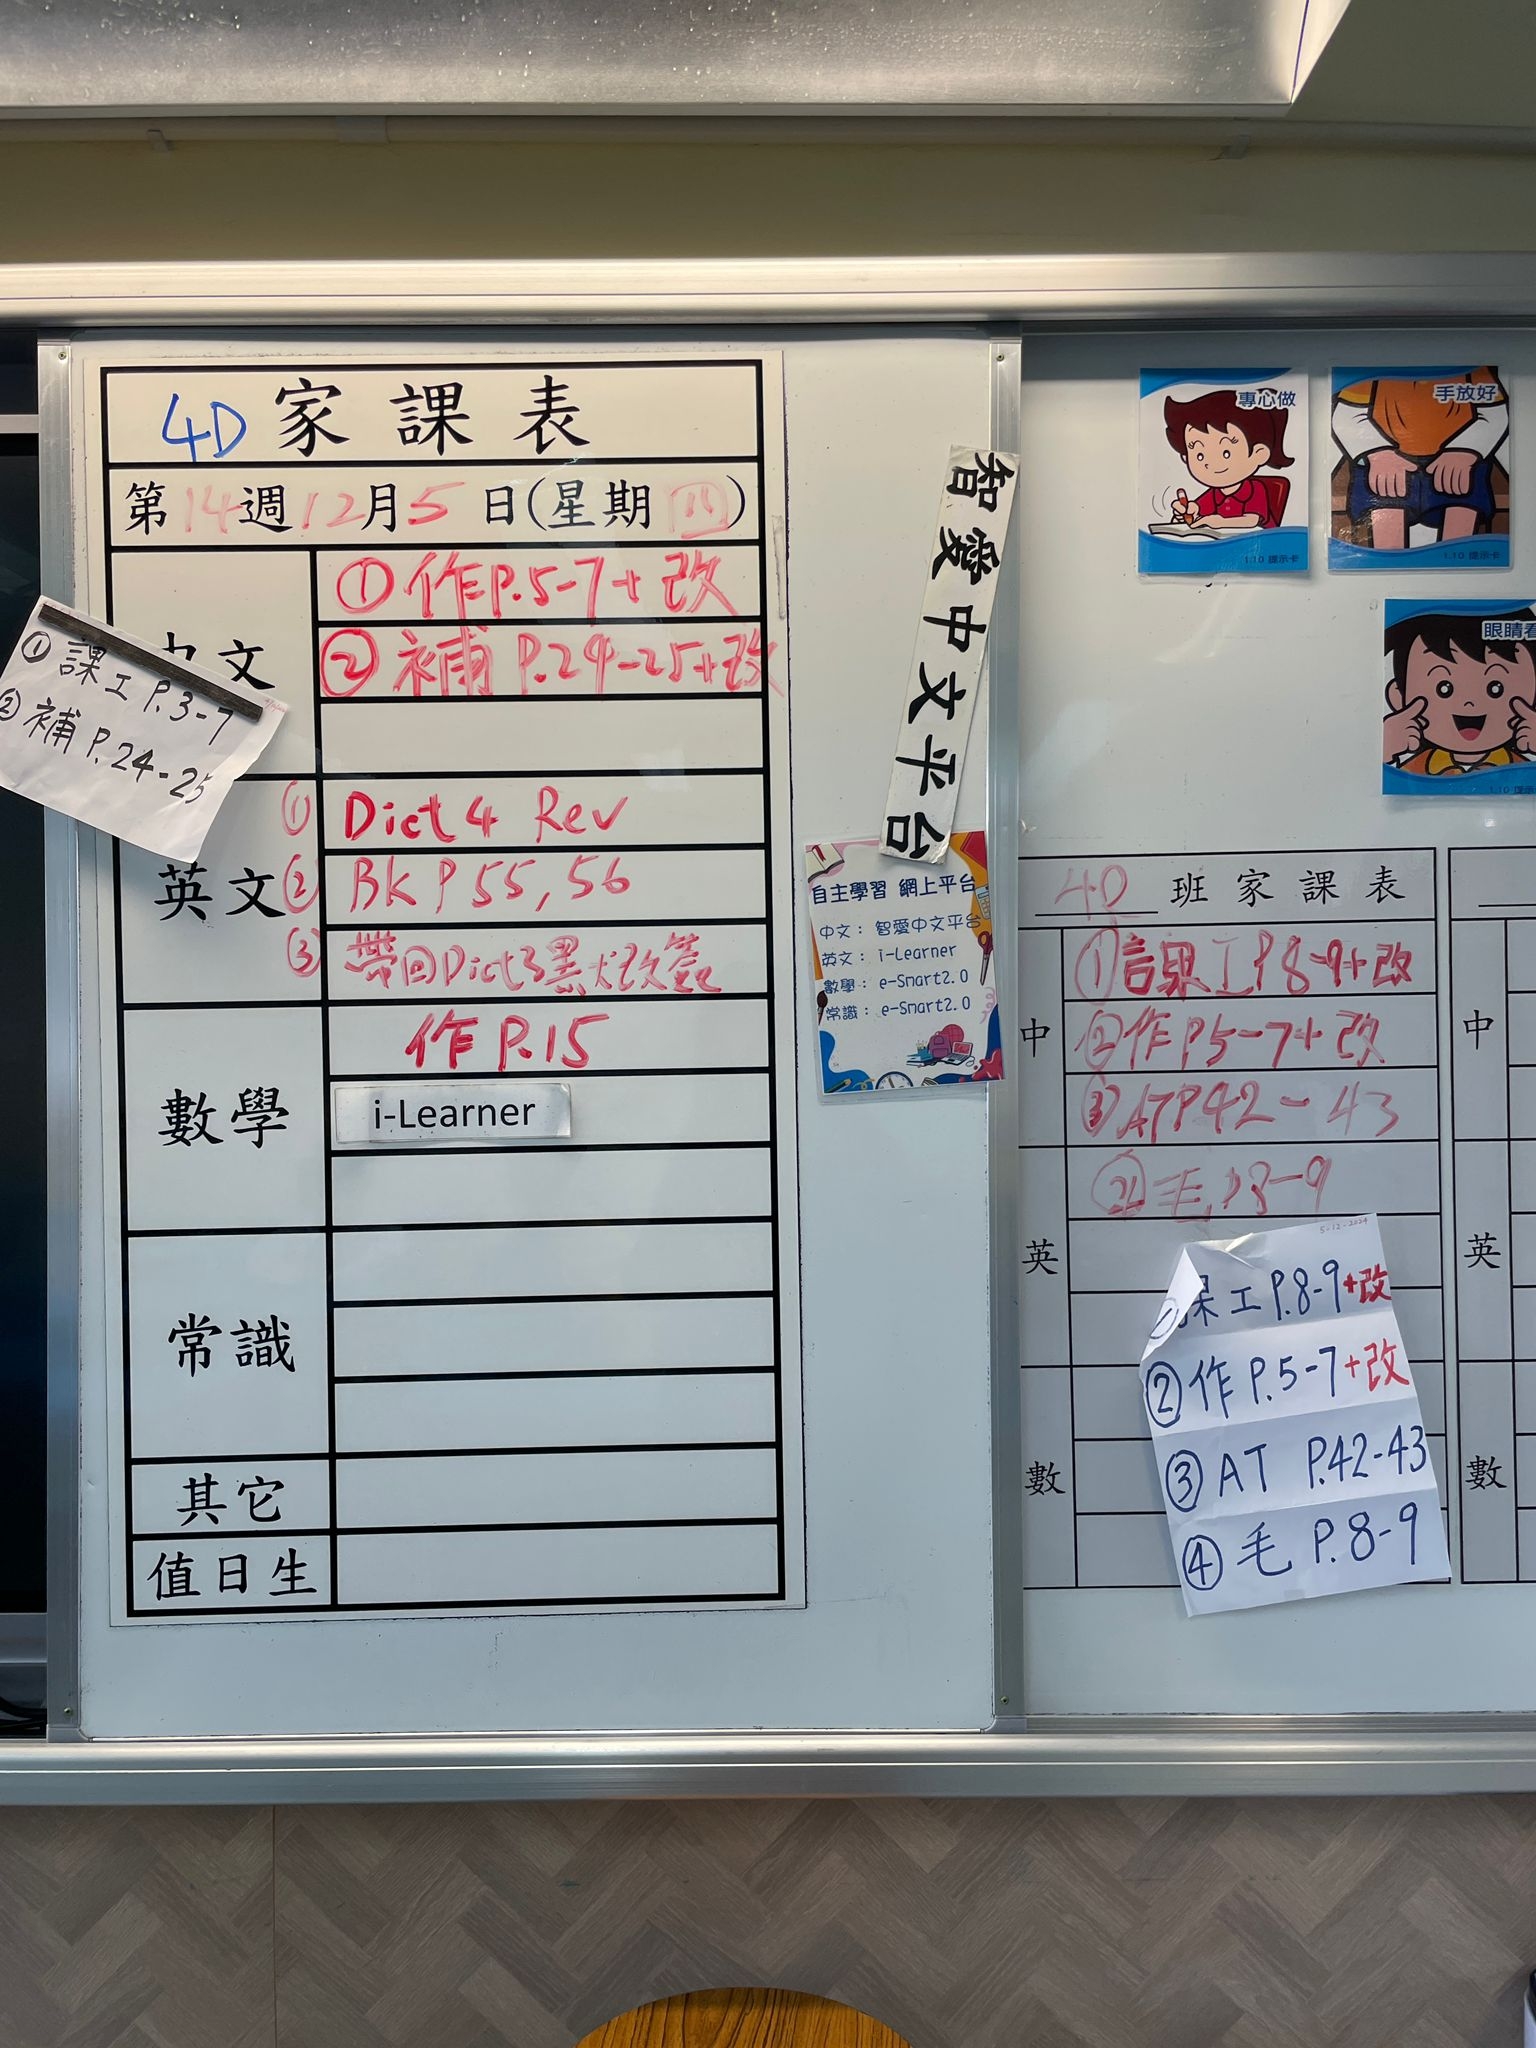 4D 家課表
第14週12月5日(星期四)
中文
① 作P.5-7+改
② 補 P.24-25+改
① 課工 P.3-7
② 補 P.24-25
英文
① Dict 4 Rev
② BK P 55, 56
③ 帶回Dict3
改簽
數學
作 P.15
i-Learner
常識
其它
值日生
智愛中文平台
自主學習 網上平台
中文：智愛中文平台
英文：i-Learner
數學：e-Smart2.0
常識：e-Smart2.0
專心做
1.10 提示卡
手放好
1.10 提示卡
眼睛看
1.10 提示
4D 班家課表
中
① 課工P.8-9+改
② 作P.5-7+改
③ AT P42-43
毛 P8-9
英
數
5-12-2024
① 課工 P.8-9+改
② 作 P.5-7+改
③ AT P.42-43
④ 毛 P.8-9
中
英
數